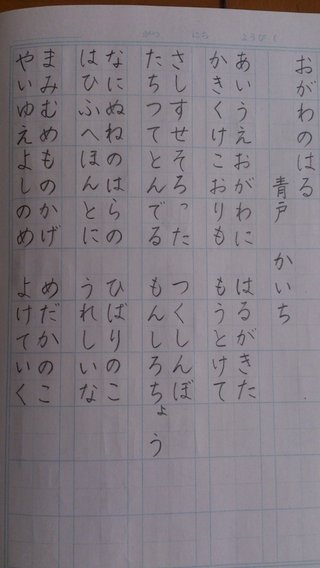 がつ にち ようび(
おがわのはる
青戸 かいち
あいうえおがわに はるがきた
かきくけこおりも もうとけて
さしすせそろった つくしんぼ
たちつてとんでる もんしろちょう
なにぬねのはらの ひばりのこ
はひふへほんとに うれしいな
まみむめものかげ めだかのこ
やいゆえよしのめ よけていく